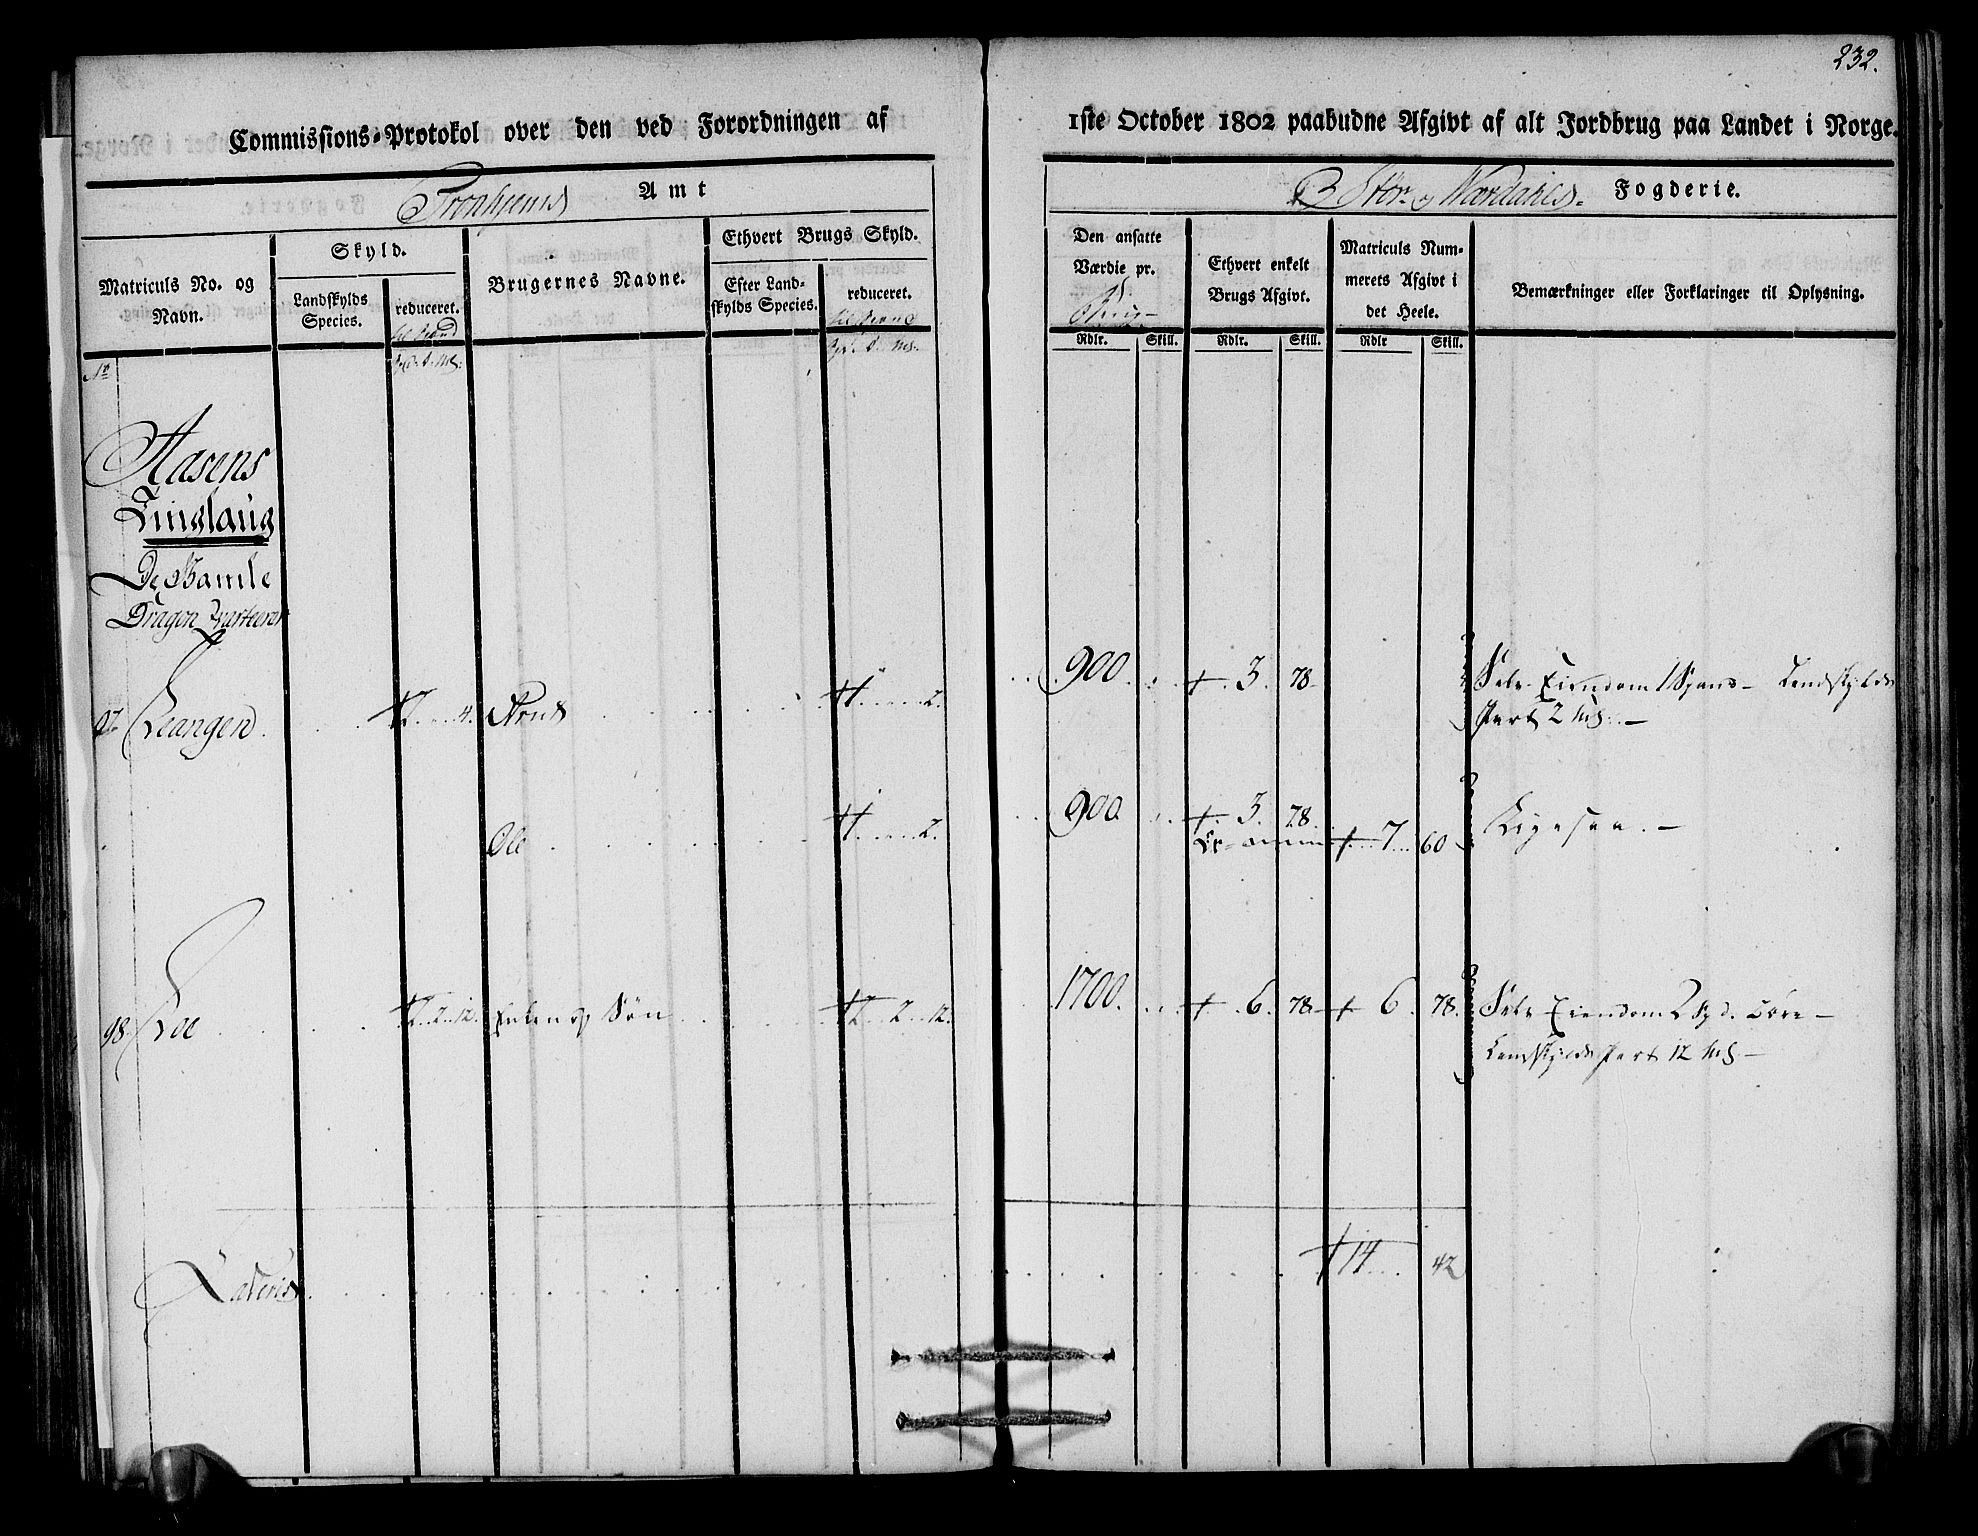 232.
Commissions-Protokol over den ved Forordningen af 1ste October 1802 paabudne Afgivt af alt Jordbrug paa Landet i Norge.
Tronhjems Amt
Stør- og Wærdahls- Fogderie.
Matriculs No. og Navn.
Skyld.
Landskylds Species.
reduceret.
Brugernes Navne.
Ethvert Brugs Skyld.
Efter Landskylds Species.
reduceret.
Den ansatte Værdie pr. Brug-
Ethvert enkelt Brugs Afgivt.
Matriculs Nummerets Afgivt i det Heele.
Bemærkninger eller Forklaringer til Oplysning.
Rdlr. Skill. Rdlr. Skill. Rdlr Skill.
No
Aasens
Tinglaug
De Gamle
Dragon Qvarteerer
97. Leangen 2 4. Arnt 1 2. 900. 3. 78. Selv Eiendom 1 Spand- Landskylds
Part 2 Mg. -
Ole 1 2. 900 3. 78. 7 60 Ligesaa. -
98. Loe 2. 2. 12. Enken og Søn 2. 2. 12. 1700. 6. 78. 6. 78. Selv Eiendom 2 Spd. 1 Øre -
Landskylds Part 12 Mg -
Lateris 14. 42